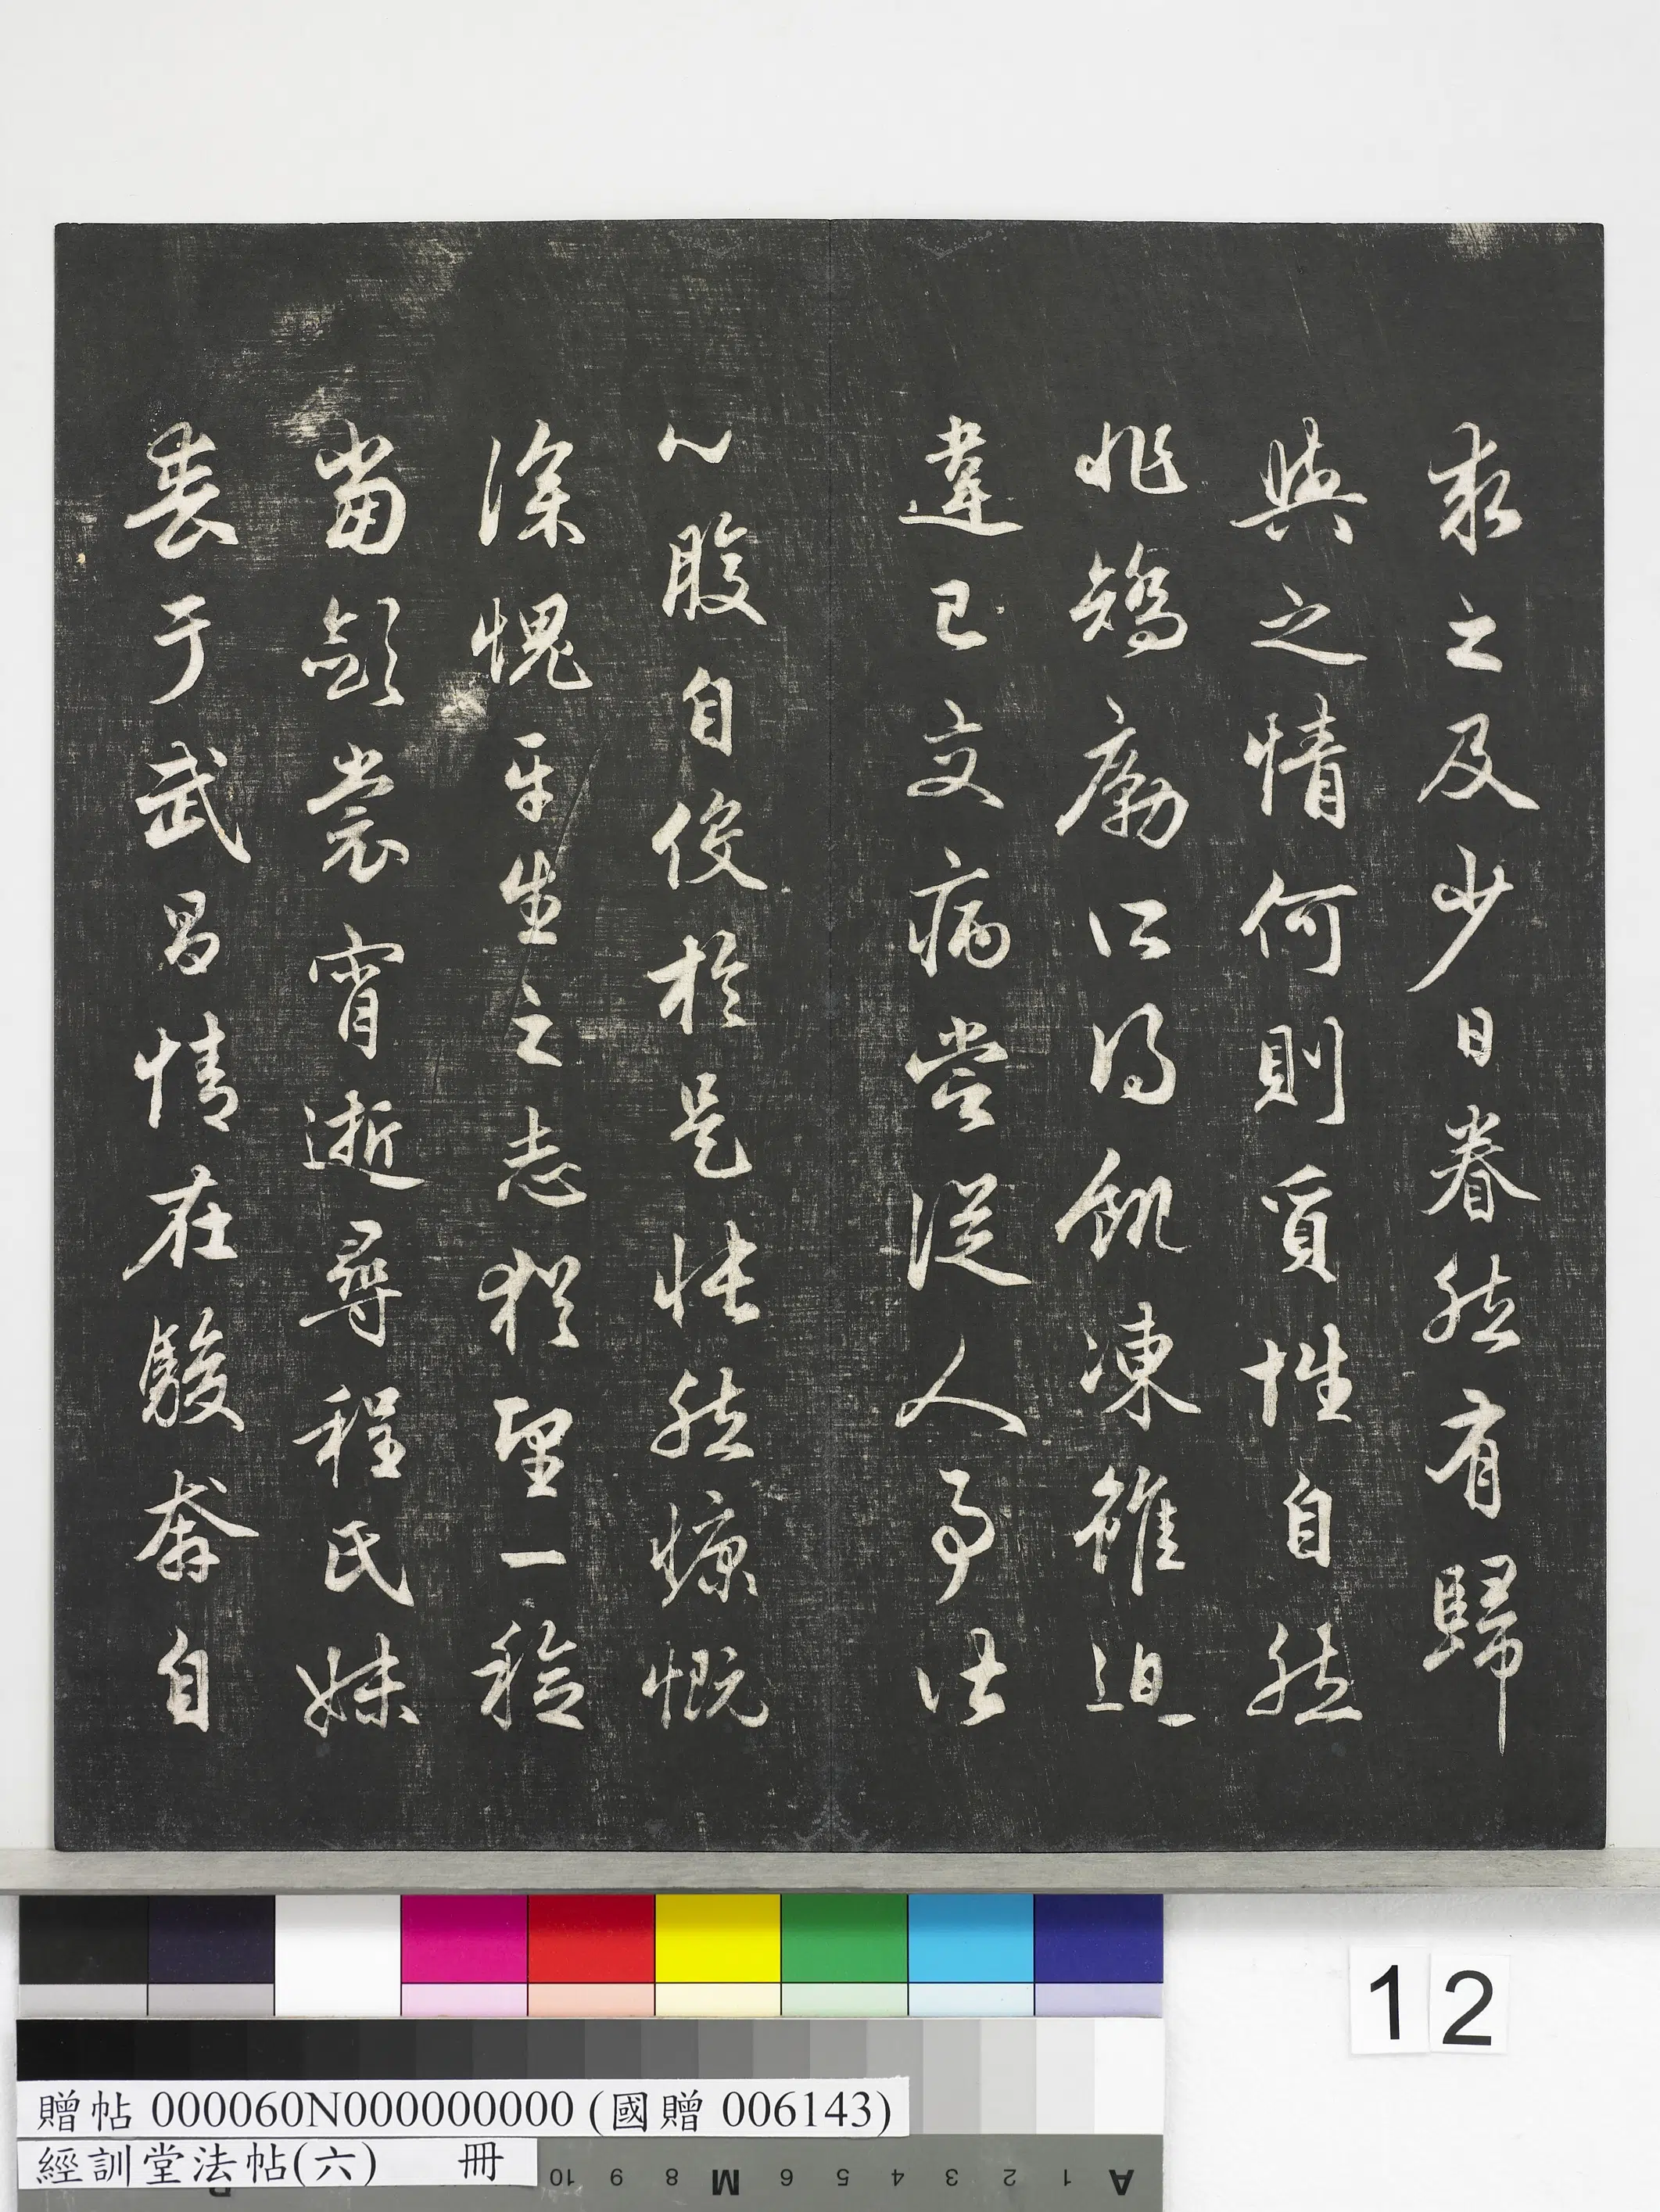 求之及少日眷然有歸
與之情何則質性自然
非矯厲所得飢凍雖迫
違己交病嘗從人事皆
口腹自役於是悵然慷慨
深愧平生之志猶望一稔
當斂裳宵逝尋程氏妹
喪于武昌情在駿奔自
12
贈帖 000060N000000000 (國贈 006143)
經訓堂法帖(六) 冊
10 9 8 M 6 5 4 3 2 1 A